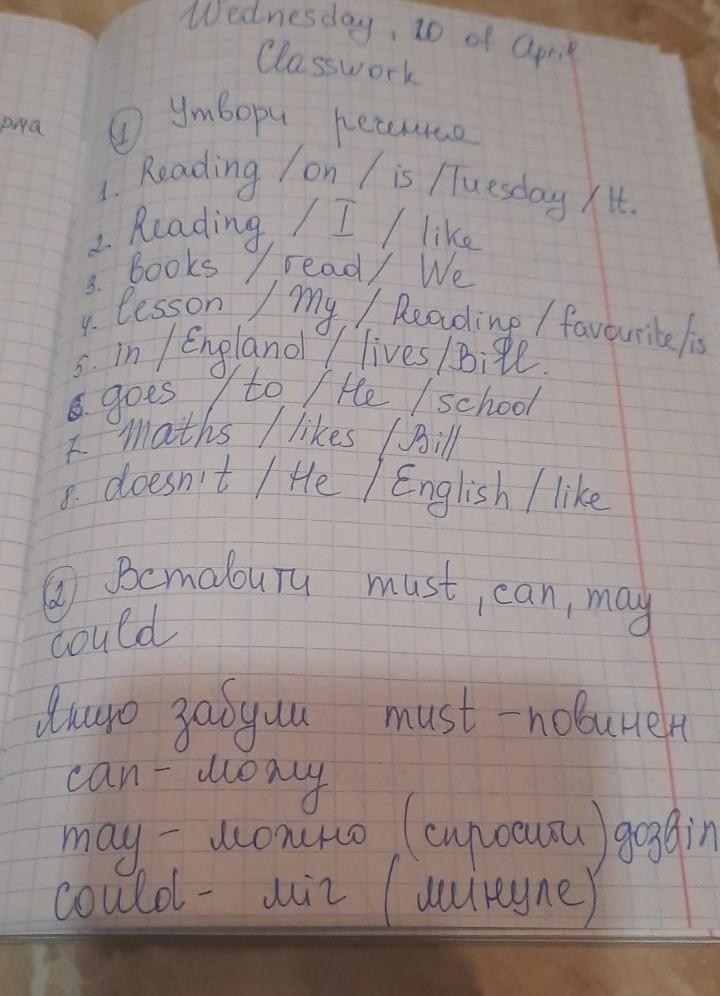 Wednesday, 10 of April
Classwork
① Утвори речення
1. Reading / on / is / Tuesday / It.
2. Reading / I / like
3. books / read / We
4. lesson / My / Reading / favourite/is
5. in / England / lives / Bill.
6. goes / to / He / school
7. maths / likes / Bill
8. doesn't / He / English / like
② Вставити must, can, may
could
Якщо забули must - повинен
can - можу
may - можно (спросити) дозвіл
could - міг (минуле)